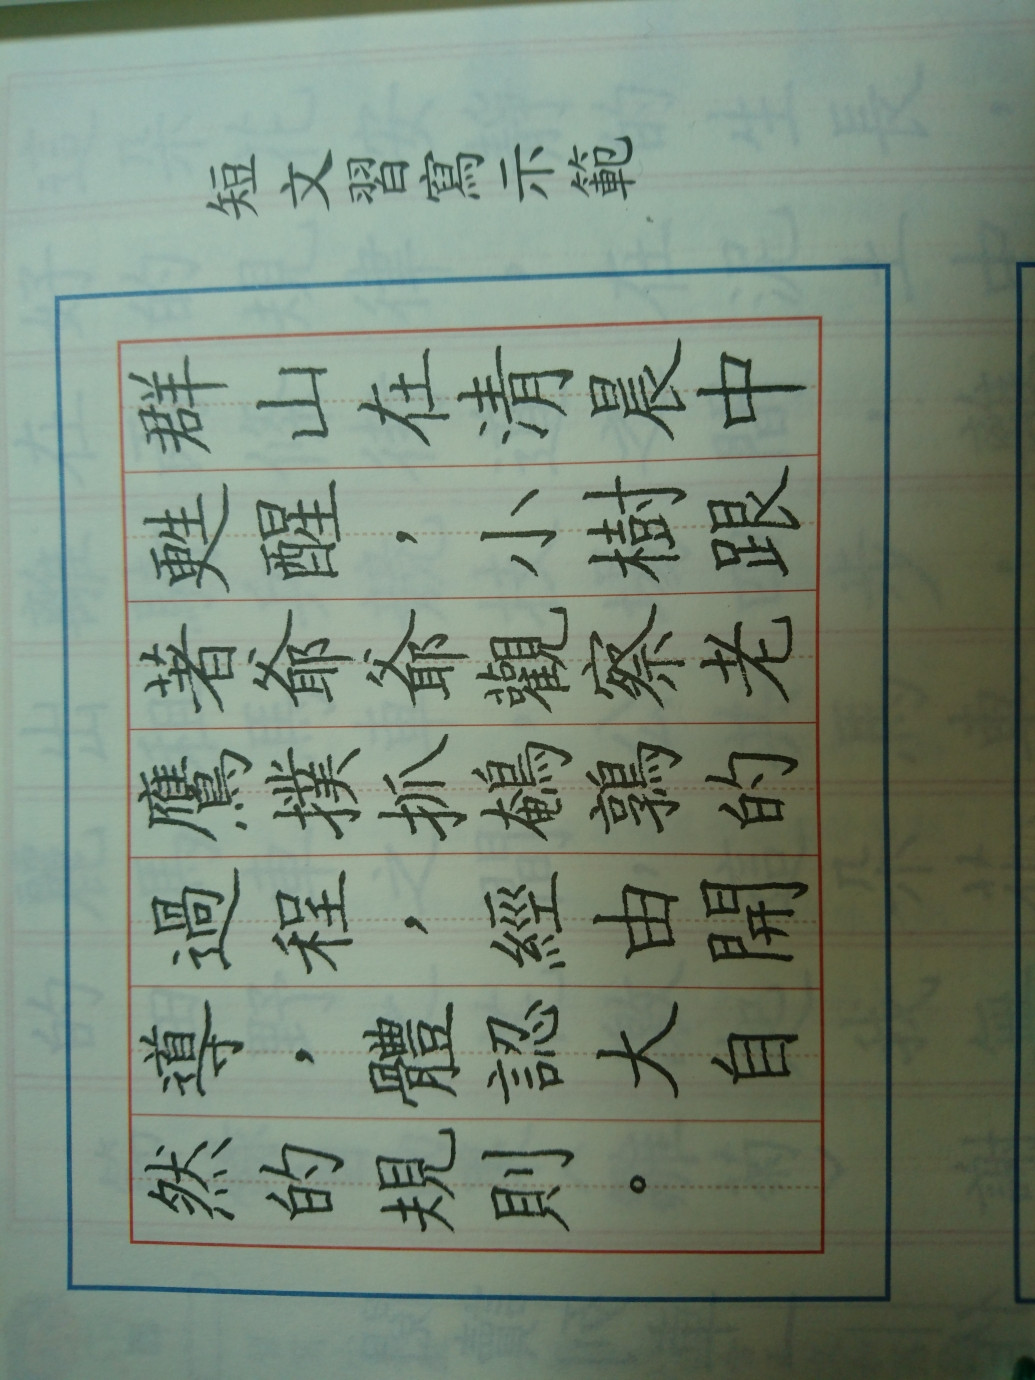 短文習寫示範
群山在清晨中
甦醒，小樹跟
著爺爺觀察老
鷹撲抓鵪鶉的
過程，經由開
導，體認大自
然的規則。